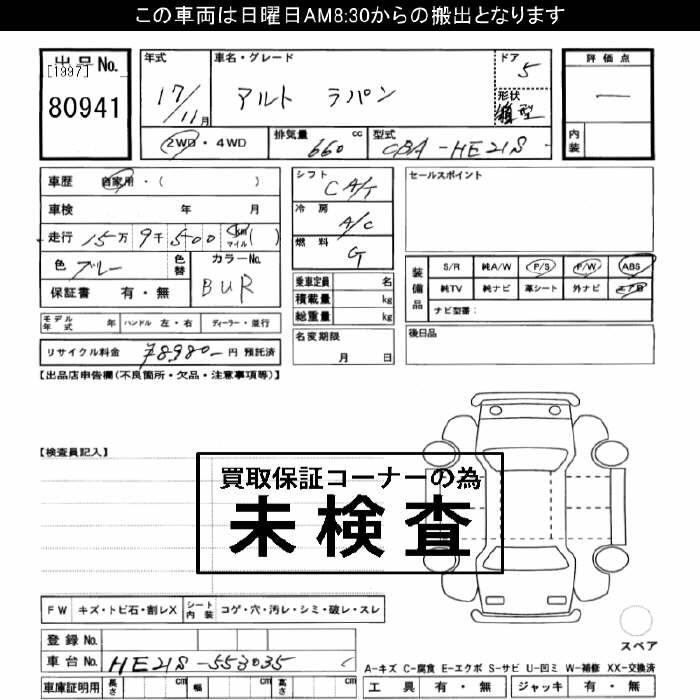 この車両は日曜日AM8:30からの搬出となります
出品No.
[1997]
80941
年式
17/11月
車名・グレード
アルト ラパン
ドア
5
形状
箱型
評価点
―
内装
2WD・4WD
排気量 660 cc
型式 CBA-HE21S
車歴 自家用・( )
車検 年 月
走行 15万9千500 km マイル ( )
色 ブルー
色替
カラーNo.
BUR
保証書 有・無
モデル年式 年 ハンドル 左・右 ディーラー・並行
リサイクル料金 78980- 円 預託済
シフト CA/T
冷房 A/C
燃料 G
乗車定員 名
積載量 kg
総重量 kg
名変期限
月 日
セールスポイント
装備品
S/R 純A/W P/S P/W ABS
純TV 純ナビ 革シート 外ナビ エアB
ナビ型番:
後日品
【出品店申告欄(不良箇所・欠品・注意事項等)】
【検査員記入】
買取保証コーナーの為
未検査
FW キズ・トビ石・割レX シート内装 コゲ・穴・汚レ・シミ・破レ・スレ
登録No.
車台No. HE21S-553035
車庫証明用 長さ cm 幅 cm 高さ cm
スペア
A-キズ C-腐食 E-エクボ S-サビ U-凹ミ W-補修 XX-交換済
工具 有・無 ジャッキ 有・無